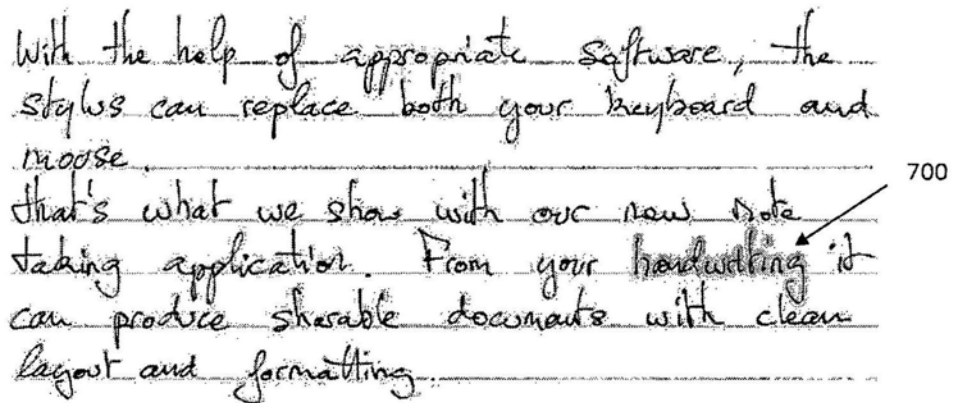 With the help of appropriate software, the
stylus can replace both your keyboard and
mouse.
700
that's what we show with our new note
taking application. From your handwriting it
can produce sharable documents with clean
layout and formatting.